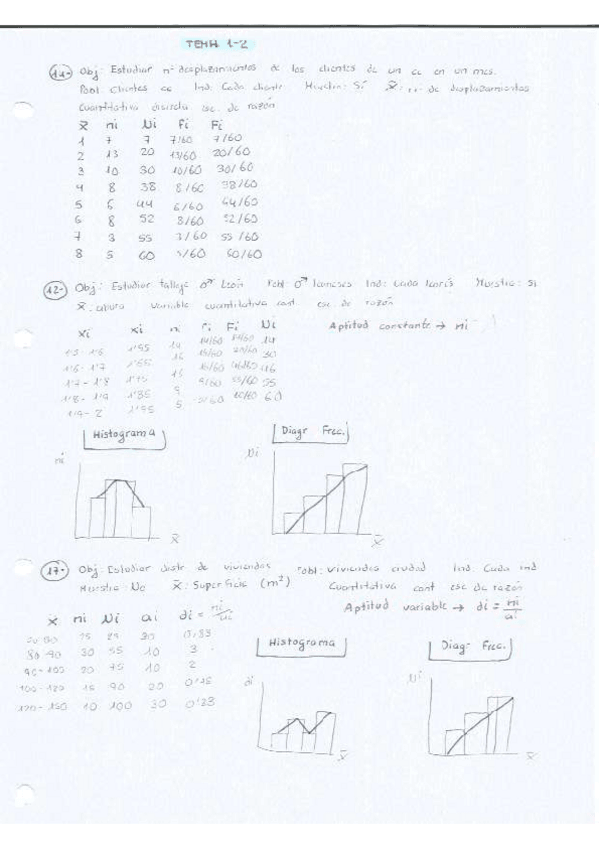 TEMA 1-2
11- Obj: Estudiar nº desplazamientos de los clientes de un cc en un mes.
Pobl: Clientes cc Ind: Cada cliente Muestra: Sí X: nº de desplazamientos
Cuantitativa discreta esc. de razón
X ni Ni fi Fi
1 7 7 7/60 7/60
2 13 20 13/60 20/60
3 10 30 10/60 30/60
4 8 38 8/60 38/60
5 6 44 6/60 44/60
6 8 52 8/60 52/60
7 3 55 3/60 55/60
8 5 60 5/60 60/60
12- Obj: Estudiar tallaje ♂ León Pobl: ♂ leoneses Ind: Cada leonés Muestra: Sí
X: altura Variable cuantitativa cont. esc de razón
Xi xi ni fi Fi Ni Aptitud constante → ni
1'5-1'6 1'55 14 14/60 14/60 14
1'6-1'7 1'65 16 16/60 30/60 30
1'7-1'8 1'75 46/60 46
1'8-1'9 1'85 9 9/60 55/60 55
1'9-2 1'95 5 5/60 60/60 60
Histograma Diagr Frec.
ni Ni
X X
17- Obj: Estudiar distr de viviendas Pobl: Viviendas ciudad Ind: Cada ind
Muestra: No X: Superficie (m²) Cuantitativa cont esc de razón
Aptitud variable → di = ni/ai
X ni Ni ai di = ni/ai
25 25 30 0'83
80-90 30 55 10 3
90-100 20 75 10 2
100-120 15 90 20 0'75
120-150 10 100 30 0'33
Histograma Diagr Frec.
di Ni
X X